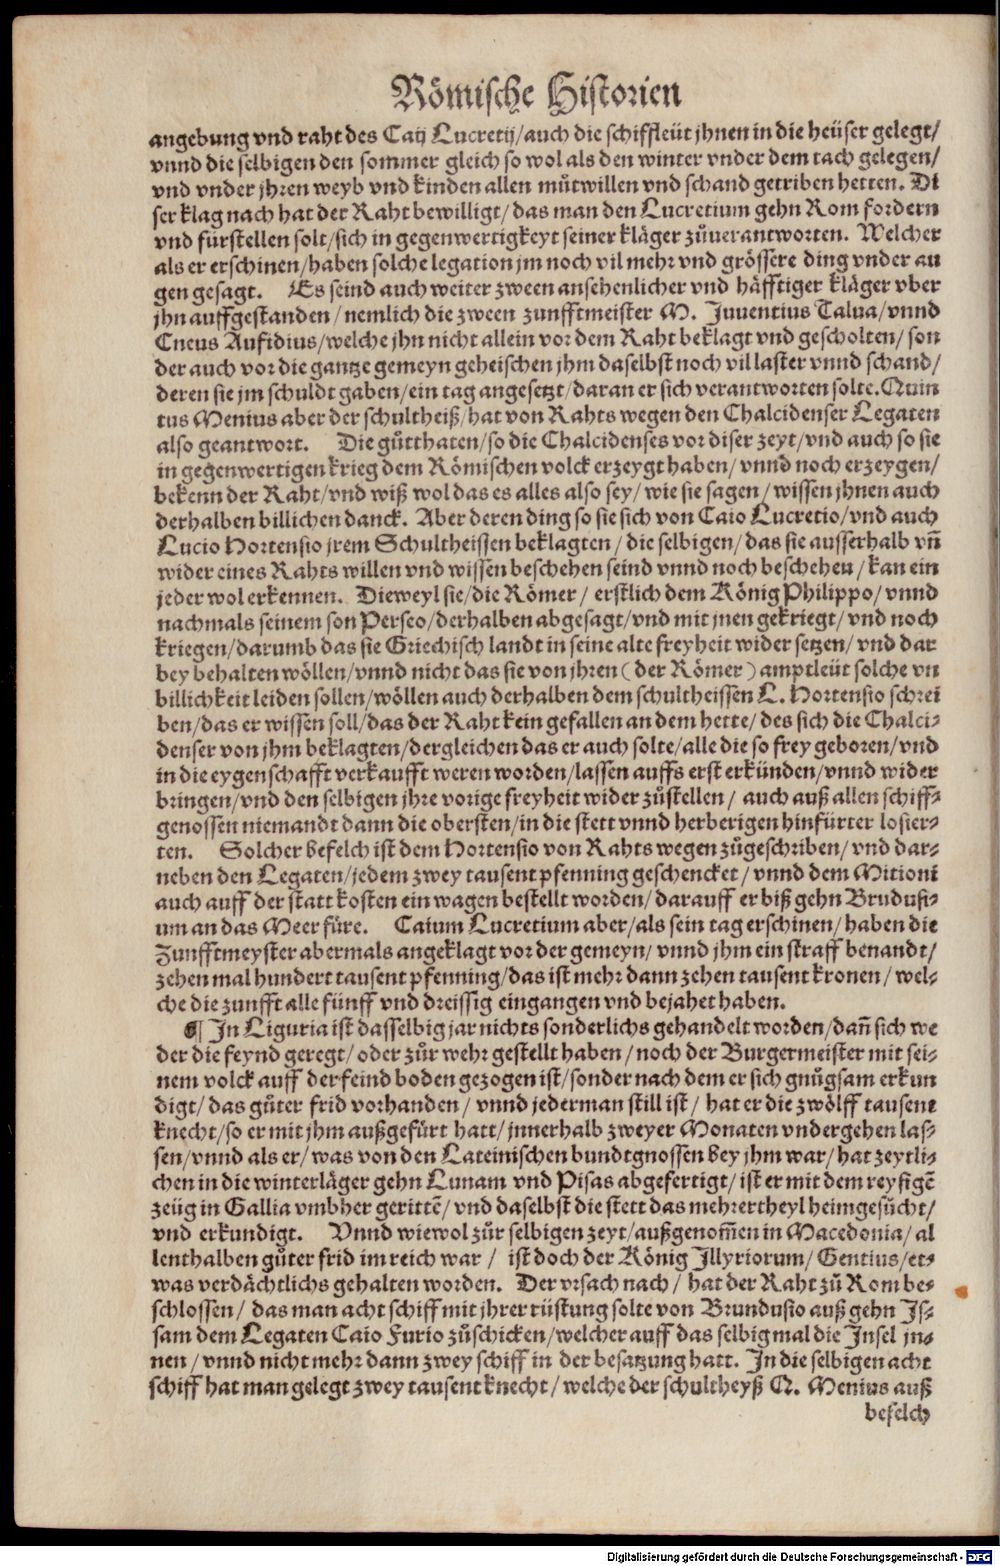 Römische Historien
angebung vnd raht des Caij Lucretij/auch die schiffleüt jhnen in die heüser gelegt/
vnnd die selbigen den sommer gleich so wol als den winter vnder dem tach gelegen/
vnd vnder jhren weyb vnd kinden allen můtwillen vnd schand getriben hetten. Di
ser klag nach hat der Raht bewilligt/das man den Lucretium gehn Rom fordern
vnd fürstellen solt/sich in gegenwertigkeyt seiner kläger zůuerantworten. Welcher
als er erschinen/haben solche legation jm noch vil mehr vnd grössere ding vnder au
gen gesagt. Es seind auch weiter zween ansehenlicher vnd häfftiger kläger vber
jhn auffgestanden/nemlich die zween zunfftmeister M. Juuentius Talua/vnnd
Cneus Aufidius/welche jhn nicht allein vor dem Raht beklagt vnd gescholten/son
der auch vor die gantze gemeyn geheischen jhm daselbst noch vil laster vnnd schand/
deren sie jm schuldt gaben/ein tag angesetzt/daran er sich verantworten solte. Quin
tus Menius aber der schultheiß/hat von Rahts wegen den Chalcidenser Legaten
also geantwort. Die gůtthaten/so die Chalcidenses vor diser zeyt/vnd auch so sie
in gegenwertigen krieg dem Römischen volck erzeygt haben/vnnd noch erzeygen/
bekenn der Raht/vnd wiß wol das es alles also sey/wie sie sagen/wissen jhnen auch
derhalben billichen danck. Aber deren ding so sie sich von Caio Lucretio/vnd auch
Lucio Hortensio jrem Schultheissen beklagten/die selbigen/das sie ausserhalb vñ
wider eines Rahts willen vnd wissen beschehen seind vnnd noch beschehen/kan ein
jeder wol erkennen. Dieweyl sie/die Römer/erstlich dem König Philippo/vnnd
nachmals seinem son Perseo/derhalben abgesagt/vnd mit jnen gekriegt/vnd noch
kriegen/darumb das sie Griechisch landt in seine alte freyheit wider setzen/vnd dar
bey behalten wöllen/vnnd nicht das sie von jhren (der Römer) amptleüt solche vn
billichkeit leiden sollen/wöllen auch derhalben dem schultheissen L. Hortensio schrei
ben/das er wissen soll/das der Raht kein gefallen an dem hette/des sich die Chalci-
denser von jhm beklagten/dergleichen das er auch solte/alle die so frey geboren/vnd
in die eygenschafft verkaufft weren worden/lassen auffs erst erkünden/vnnd wider
bringen/vnd den selbigen jhre vorige freyheit wider zůstellen/auch auß allen schiff-
genossen niemandt dann die obersten/in die stett vnnd herberigen hinfürter losier-
ten. Solcher befelch ist dem Hortensio von Rahts wegen zůgeschriben/vnd dar-
neben den Legaten/jedem zwey tausent pfenning geschencket/vnnd dem Mitioni
auch auff der statt kosten ein wagen bestellt worden/darauff er biß gehn Brudusi-
um an das Meer füre. Caium Lucretium aber/als sein tag erschinen/haben die
Zunfftmeyster abermals angeklagt vor der gemeyn/vnnd jhm ein straff benandt/
zehen mal hundert tausent pfenning/das ist mehr dann zehen tausent kronen/wel-
che die zunfft alle fünff vnd dreissig eingangen vnd bejahet haben.
¶ In Liguria ist dasselbig jar nichts sonderlichs gehandelt worden/dañ sich we
der die feynd geregt/oder zůr wehr gestellt haben/noch der Burgermeister mit sei-
nem volck auff der feind boden gezogen ist/sonder nach dem er sich gnůgsam erkun
digt/das gůter frid vorhanden/vnnd jederman still ist/hat er die zwölff tausent
knecht/so er mit jhm außgefürt hatt/jnnerhalb zweyer Monaten vndergehen las-
sen/vnnd als er/was von den Lateinischen bundtgnossen bey jhm war/hat zeytli-
chen in die winterläger gehn Lunam vnd Pisas abgefertigt/ist er mit dem reysigē
zeüg in Gallia vmbher gerittē/vnd daselbst die stett das mehrertheyl heimgesůcht/
vnd erkundigt. Vnnd wiewol zůr selbigen zeyt/außgenom̃en in Macedonia/al
lenthalben gůter frid im reich war/ist doch der König Illyriorum/Gentius/et-
was verdächtlichs gehalten worden. Der vrsach nach/hat der Raht zů Rom be-
schlossen/das man acht schiff mit jhrer rüstung solte von Brundusio auß gehn Is-
sam dem Legaten Caio Furio zůschicken/welcher auff das selbig mal die Insel jn-
nen/vnnd nicht mehr dann zwey schiff in der besatzung hatt. In die selbigen acht
schiff hat man gelegt zwey tausent knecht/welche der schultheyß Q. Menius auß
befelch
Digitalisierung gefördert durch die Deutsche Forschungsgemeinschaft - DFG